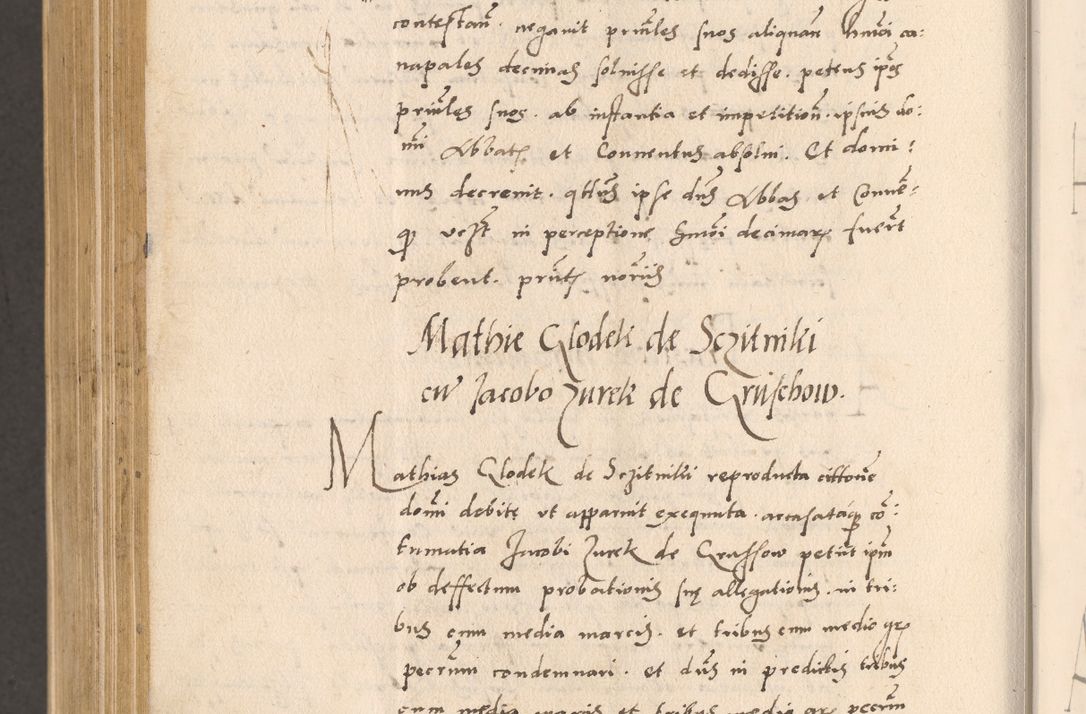 contestañ. negavit prin̄les suos aliquam hm̄oi ca:
napales decimas solvisse et dedisse. petens ip̄os
prin̄les suos. ab instantia et impetition̄. ipsius do:
m̄i Abbatis et Conventus absolvi. Et domi:
nus decrevit. qt̄us ipse dn̄s Abbas et Conve:
in perceptione hm̄oi decimarum fuer̄t
probent. pn̄tis nor̄iis
Mathie Glodek de Sczitniki
cū Jacobo Zurek de Gruschow.
Mathias Glodek de Sczitniki reproducta citt̄one
dom̄i debite ut apparuit exequuta. accusataque cō:
tumatia Jacobi Zurek de Grussow petiit ip̄m
ob deffectum probationis suę allegationis. in tri:
bus cum media marcis. et tribus cum medio gros
pecc̄um condemnari. et dn̄s in predictis tribus
cum media marcis et tribus medio gros pecc̄um